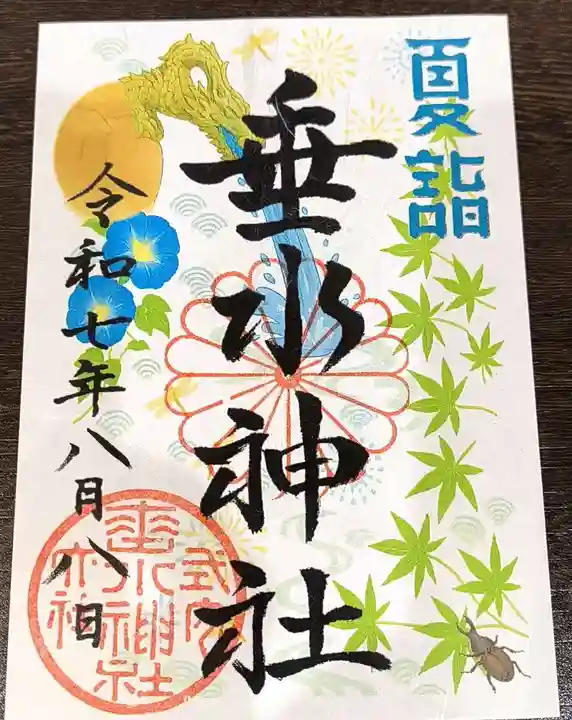 夏詣
垂水神社
令和七年八月八日
垂水神社